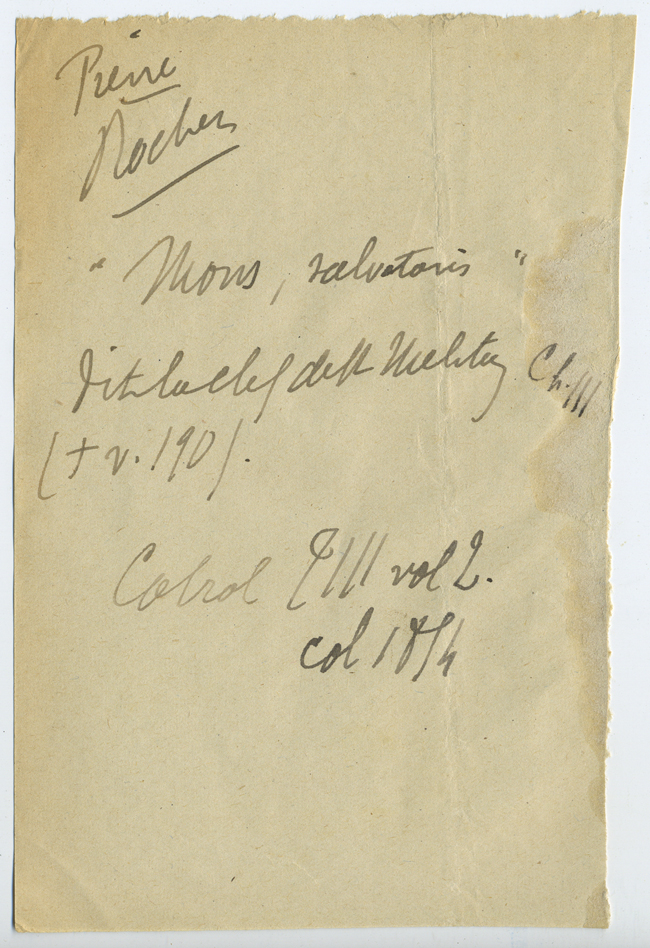 Pierre
Rocher
" Mons, salvatoris "
dit la clef de St Meliton Ch. III
(+ v. 190).
Cabrol T III vol 2.
col 1854